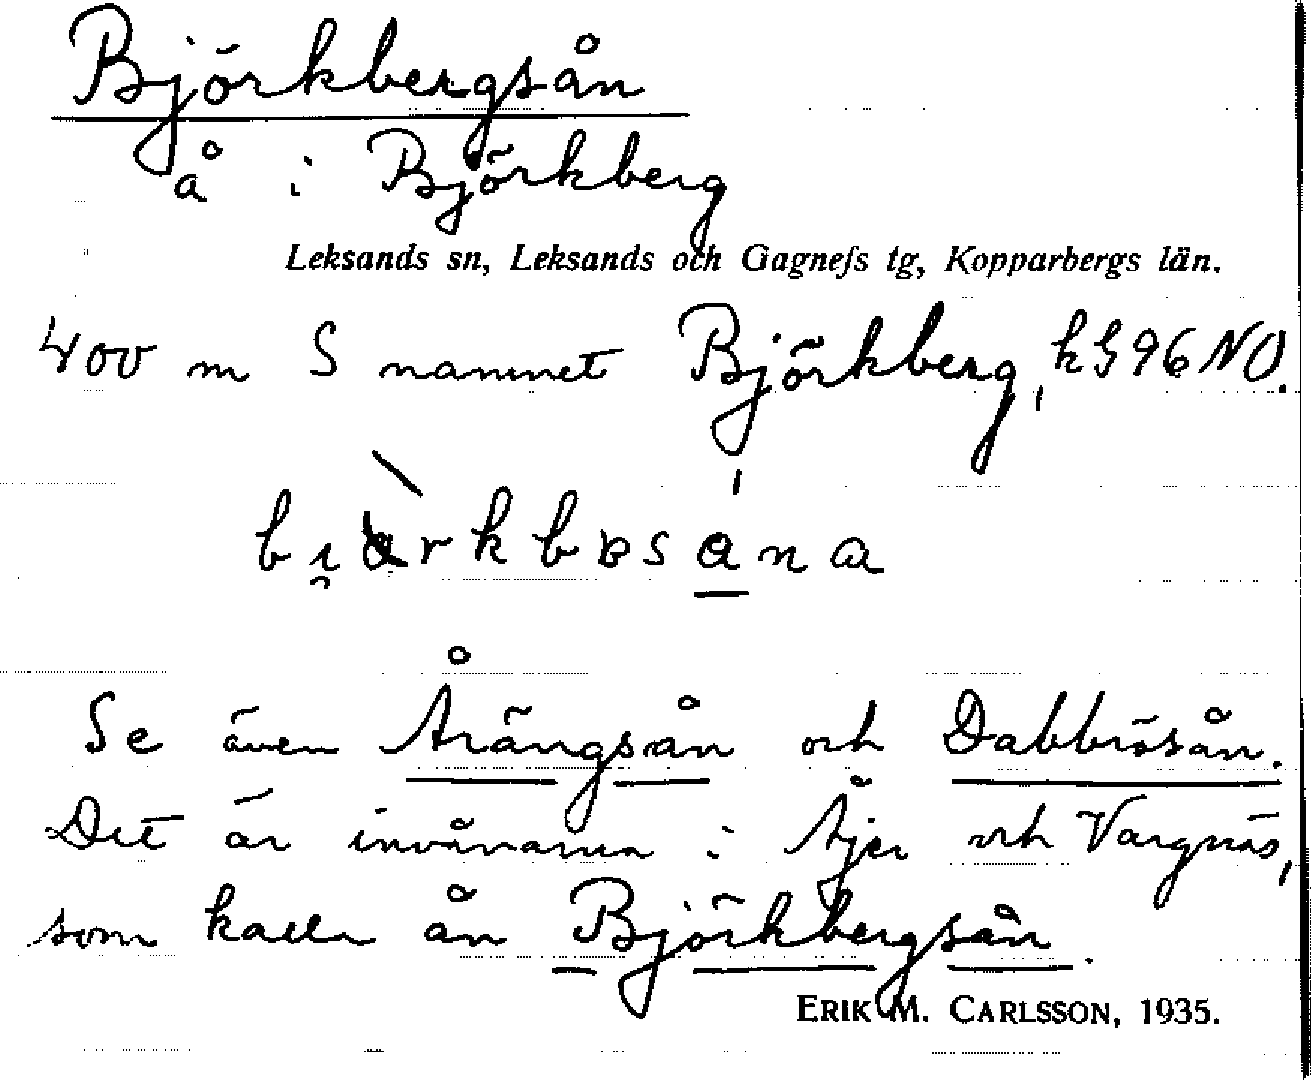 Björkbergsån
å i Björkberg
Leksands sn, Leksands och Gagnefs tg, Kopparbergs län.
400 m S namnet Björkberg, k§96NO.
Se även Årängsån och Dabbrösån.
Det är invånarna i Åjer och Vargnäs,
som kalla ån Björkbergsån.
ERIK M. CARLSSON, 1935.